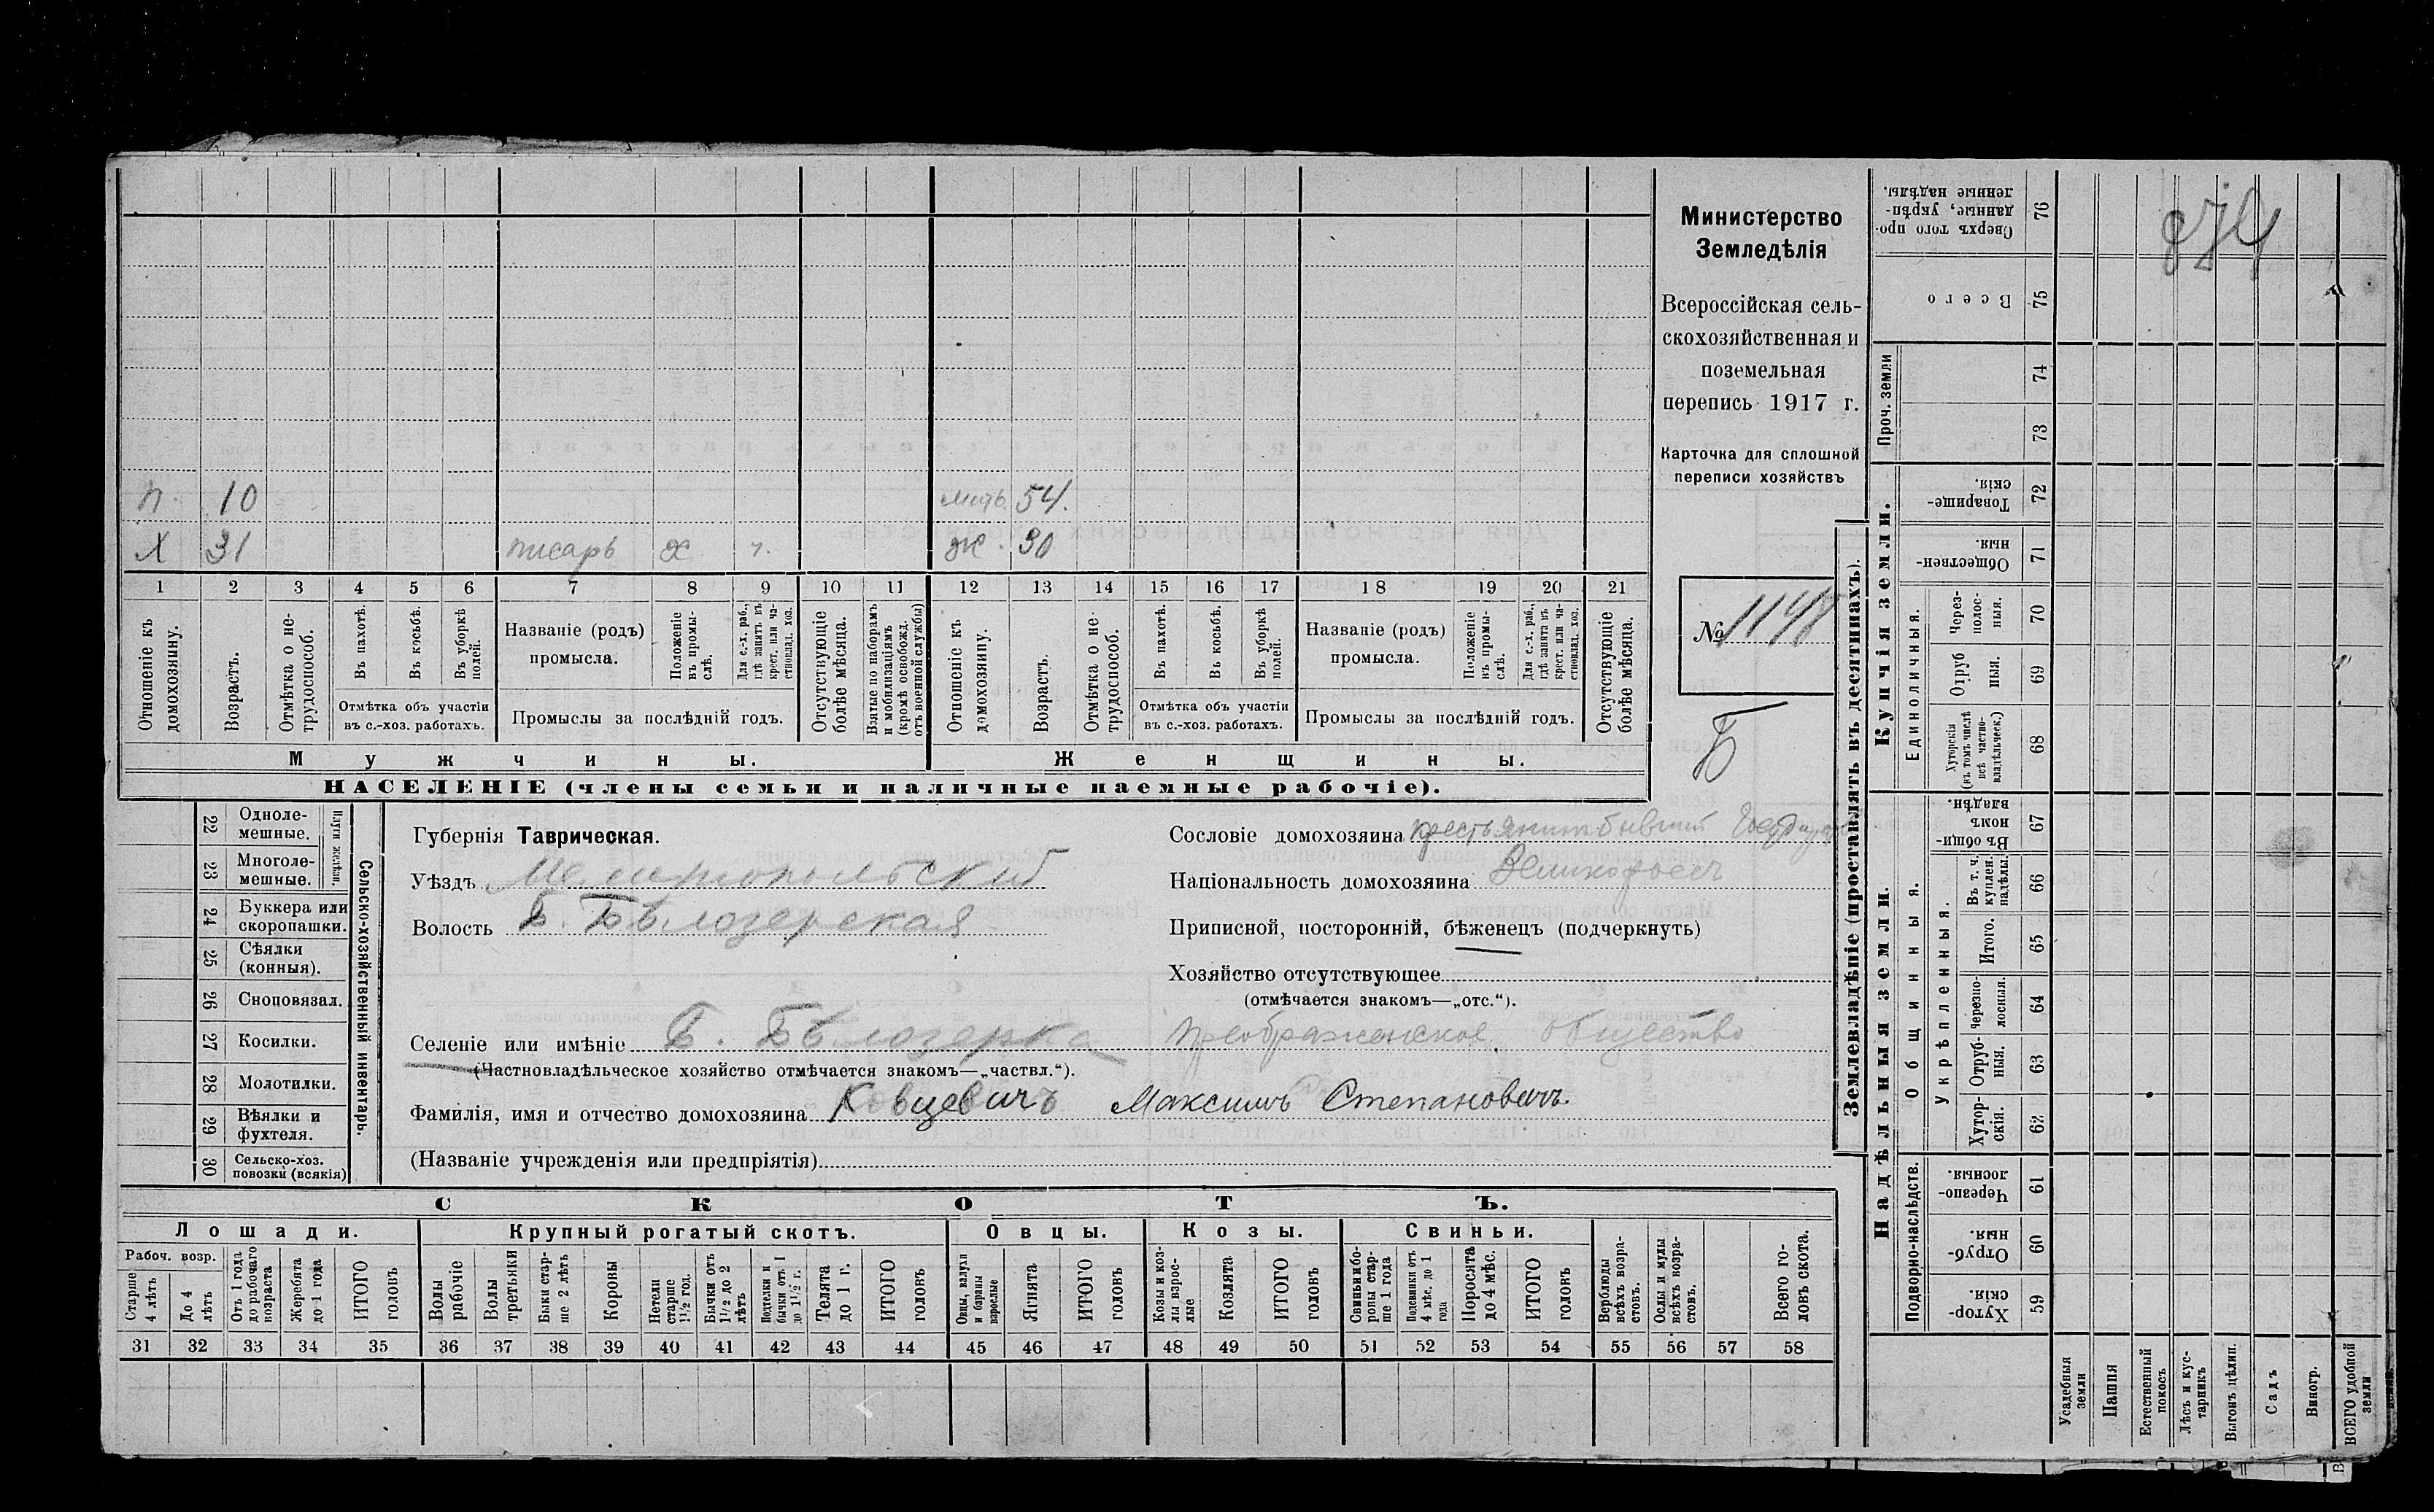 Министерство
Земледѣлія
Всероссійская сель-
скохозяйственная и
поземельная
перепись 1917 г.
Карточка для сплошной
переписи хозяйствъ
№ 1148
Б
п. 10 мать 54.
Х 31 писарь х ч. ж. 30
1 2 3 4 5 6 7 8 9 10 11 12 13 14 15 16 17 18 19 20 21
Отношеніе къ домохозяину.
Возрастъ.
Отмѣтка о не-трудоспособ.
Въ пахотѣ.
Въ косьбѣ.
Въ уборкѣ полей.
Отмѣтка объ участіи
въ с.-хоз. работахъ.
Названіе (родъ)
промысла.
Положеніе въ промы-слѣ.
Для с.-х. раб., гдѣ занятъ въ крест. или ча-стновлад. хоз.
Промыслы за послѣдній годъ.
Отсутствующіе болѣе мѣсяца.
Взятые по наборамъ и мобилизаціямъ (кромѣ освобожд. отъ военной службы)
Отношеніе къ домохозяину.
Возрастъ.
Отмѣтка о не-трудоспособ.
Въ пахотѣ.
Въ косьбѣ.
Въ уборкѣ полей.
Отмѣтка объ участіи
въ с.-хоз. работахъ.
Названіе (родъ)
промысла.
Положеніе въ промы-слѣ.
Для с.-х. раб., гдѣ занята въ крест. или ча-стновлад. хоз.
Промыслы за послѣдній годъ.
Отсутствующіе болѣе мѣсяца.
Мужчины. Женщины.
НАСЕЛЕНІЕ (члены семьи и наличные наемные рабочіе).
22 Одноле-мешные.
23 Многоле-мешные.
Плуги желѣзн.
24 Буккера или скоропашки.
25 Сѣялки (конныя).
26 Сноповязал.
27 Косилки.
28 Молотилки.
29 Вѣялки и фухтеля.
30 Сельско-хоз. повозки (всякія)
Сельско-хозяйственный инвентарь.
Губернія Таврическая.
Уѣздъ Мелитопольский
Волость Б. Бѣлозерская
Селеніе или имѣніе Б. Бѣлозерка Преображенское общество
(Частновладѣльческое хозяйство отмѣчается знакомъ—„частвл.“).
Фамилія, имя и отчество домохозяина Ковцевичъ Максимъ Степановичъ.
(Названіе учрежденія или предпріятія)
Сословіе домохозяина крестьянинъ бывший
Національность домохозяина Великороссъ
Приписной, посторонній, бѣженецъ (подчеркнуть)
Хозяйство отсутствующее
(отмѣчается знакомъ—„отс.“).
СКОТЪ.
Лошади. Крупный рогатый скотъ. Овцы. Козы. Свиньи.
Рабоч. возр.
Старше 4 лѣтъ
До 4 лѣтъ
Отъ 1 года до рабочаго возраста
Жеребята до 1 года
ИТОГО головъ
Волы рабочіе
Волы третьяки
Быки стар-ше 2 лѣтъ
Коровы
Нетели старше 1½ год.
Бычки отъ 1½ до 2 лѣтъ
Подтелки и бычки отъ 1 до 1½ г.
Телята до 1 г.
ИТОГО головъ
Овцы, валухи и бараны взрослые
Ягнята
ИТОГО головъ
Козы и коз-лы взрос-лые
Козлята
ИТОГО головъ
Свиньи и бо-ровы стар-ше 1 года
Подсвинки отъ 4 мѣс. до 1 года
Поросята до 4 мѣс.
ИТОГО головъ
Верблюды всѣхъ возра-стовъ.
Ослы и мулы всѣхъ возра-стовъ.
Всего го-ловъ скота.
31 32 33 34 35 36 37 38 39 40 41 42 43 44 45 46 47 48 49 50 51 52 53 54 55 56 57 58
Землевладѣніе (проставлять въ десятинахъ).
Надѣльныя земли. Купчія земли.
Проч. земли
Подворно-наслѣдств.
Общинныя.
Укрѣпленныя.
Единоличныя.
76 Сверхъ того про-данные, укрѣп-ленные надѣлы.
75 Всего
74
73
72 Товарище-скія.
71 Обществен-ныя.
70 Через-полос-ныя.
69 Отруб ныя.
68 Хуторскія (въ томъ числѣ всѣ частно-владѣльческ.)
67 Въ общин-номъ владѣн.
66 Въ т. ч. куплен. надѣлы.
65 Итого.
64 Черезпо-лосныя.
63 Отруб-ныя.
62 Хутор-скія.
61 Черезпо-лосныя
60 Отруб-ныя
59 Хутор-скія
Усадебныя земли
Пашня
Естественный покосъ
Лѣсъ и кус-тарникъ
Выгонъ цѣлин.
Садъ
Виногр.
ВСЕГО удобной земли